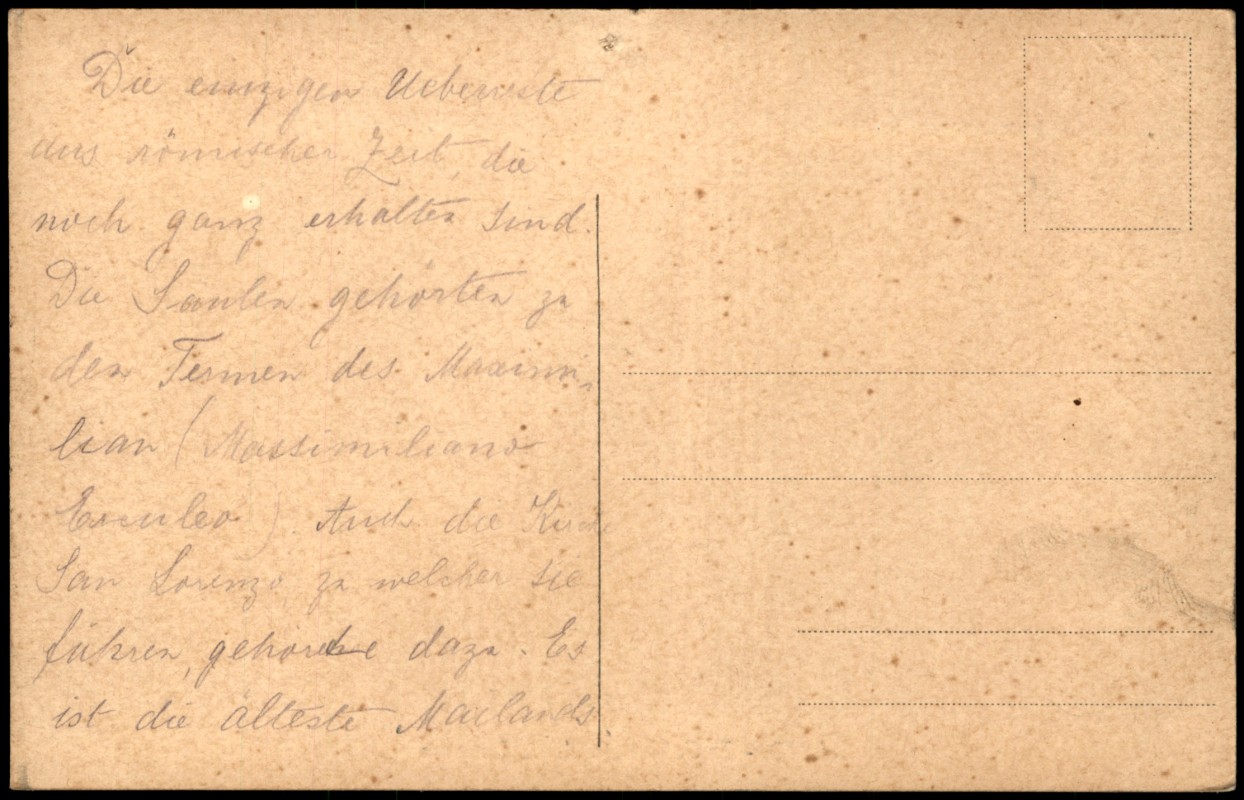 Die einzigen Ueberreste
aus römischer Zeit, die
noch ganz erhalten sind.
Die Säulen gehörten zu
den Termen des Maximi-
lian (Massimiliano
Erculeo). Auch die Kirche
San Lorenzo, zu welcher sie
führen, gehörte dazu. Es
ist die älteste Mailands.